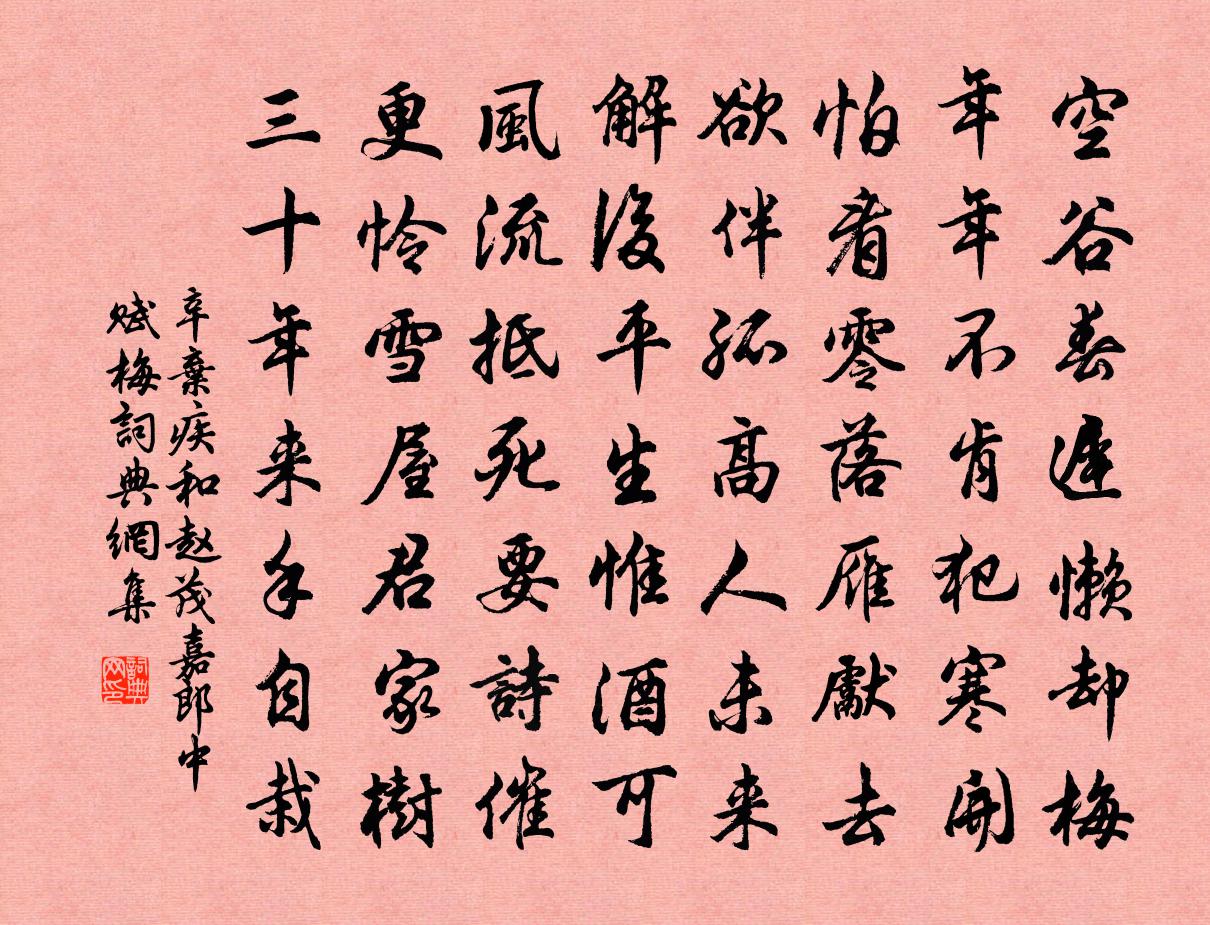 空谷春遲懶却梅
年年不肯犯寒開
怕看零落雁獻去
欲伴孤高人未来
解後平生惟酒可
風流抵死要詩催
更怜雪屋君家樹
三十年来手自栽
辛棄疾和赵茂嘉郎中
赋梅詞典網集
詞典网印